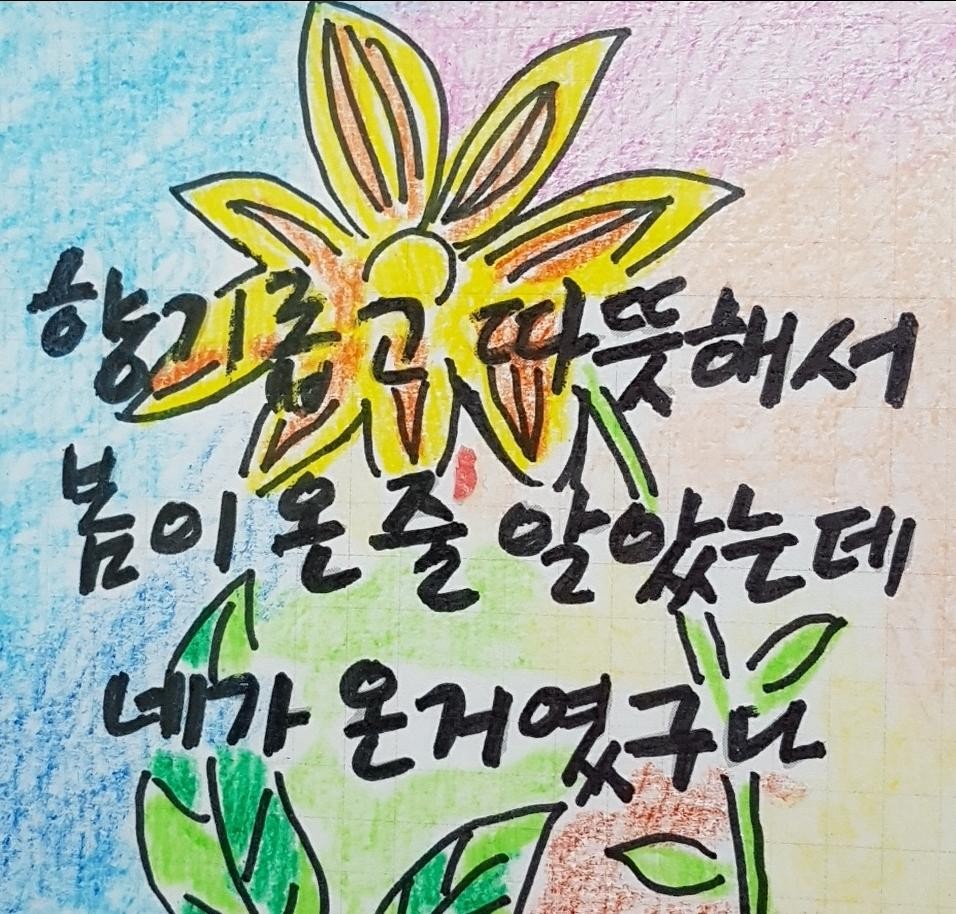 향기롭고 따뜻해서
봄이 온 줄 알았는데
네가 온거였구나